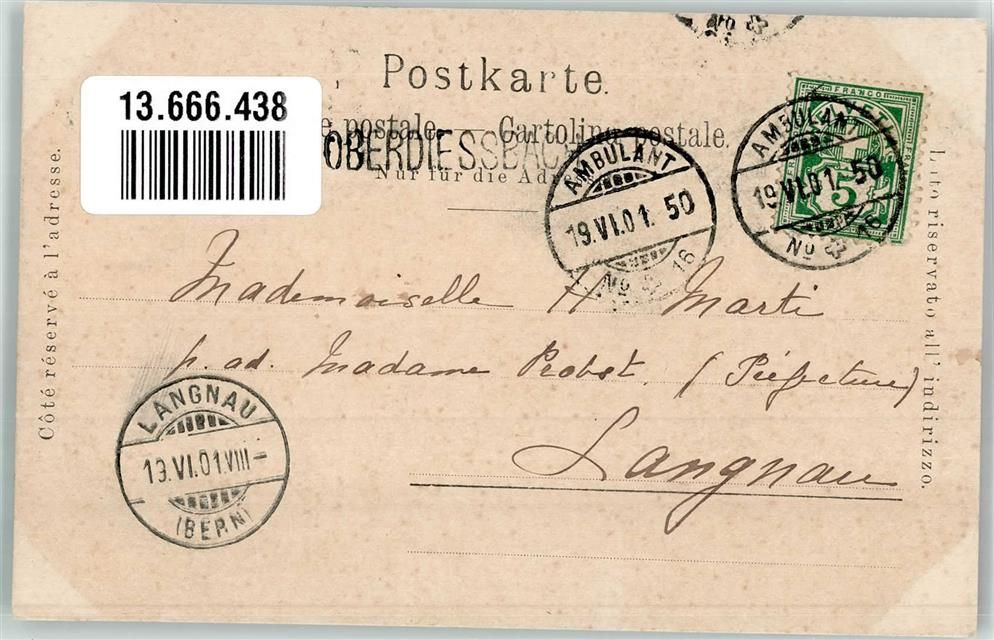 No
Postkarte.
13.666.438
e postale. Cartolina postale.
OBERDIESSBACH
Nur für die Adr
AMBULANT
19.VI.01. 50
No 16
AMBULANT
19.VI.01. 50
No 16
FRANCO
5
Côté réservé à l'adresse.
Lato riservato all' indirizzo.
Mademoiselle H Marti
p. ad. Madame Probst. (Préfecture)
Langnau
LANGNAU
19.VI.01.VIII–
(BERN)